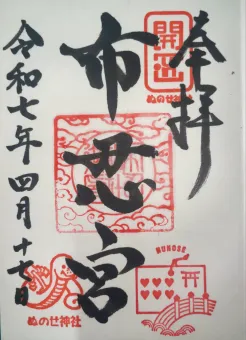 奉拝
開運
ぬのせ神社
布忍宮
令和七年四月十七日
ぬのせ神社
NUNOSE